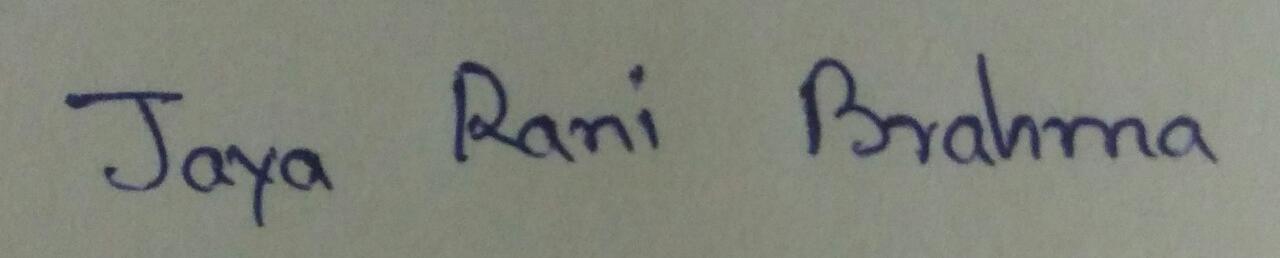 Jaya Rani Brahma